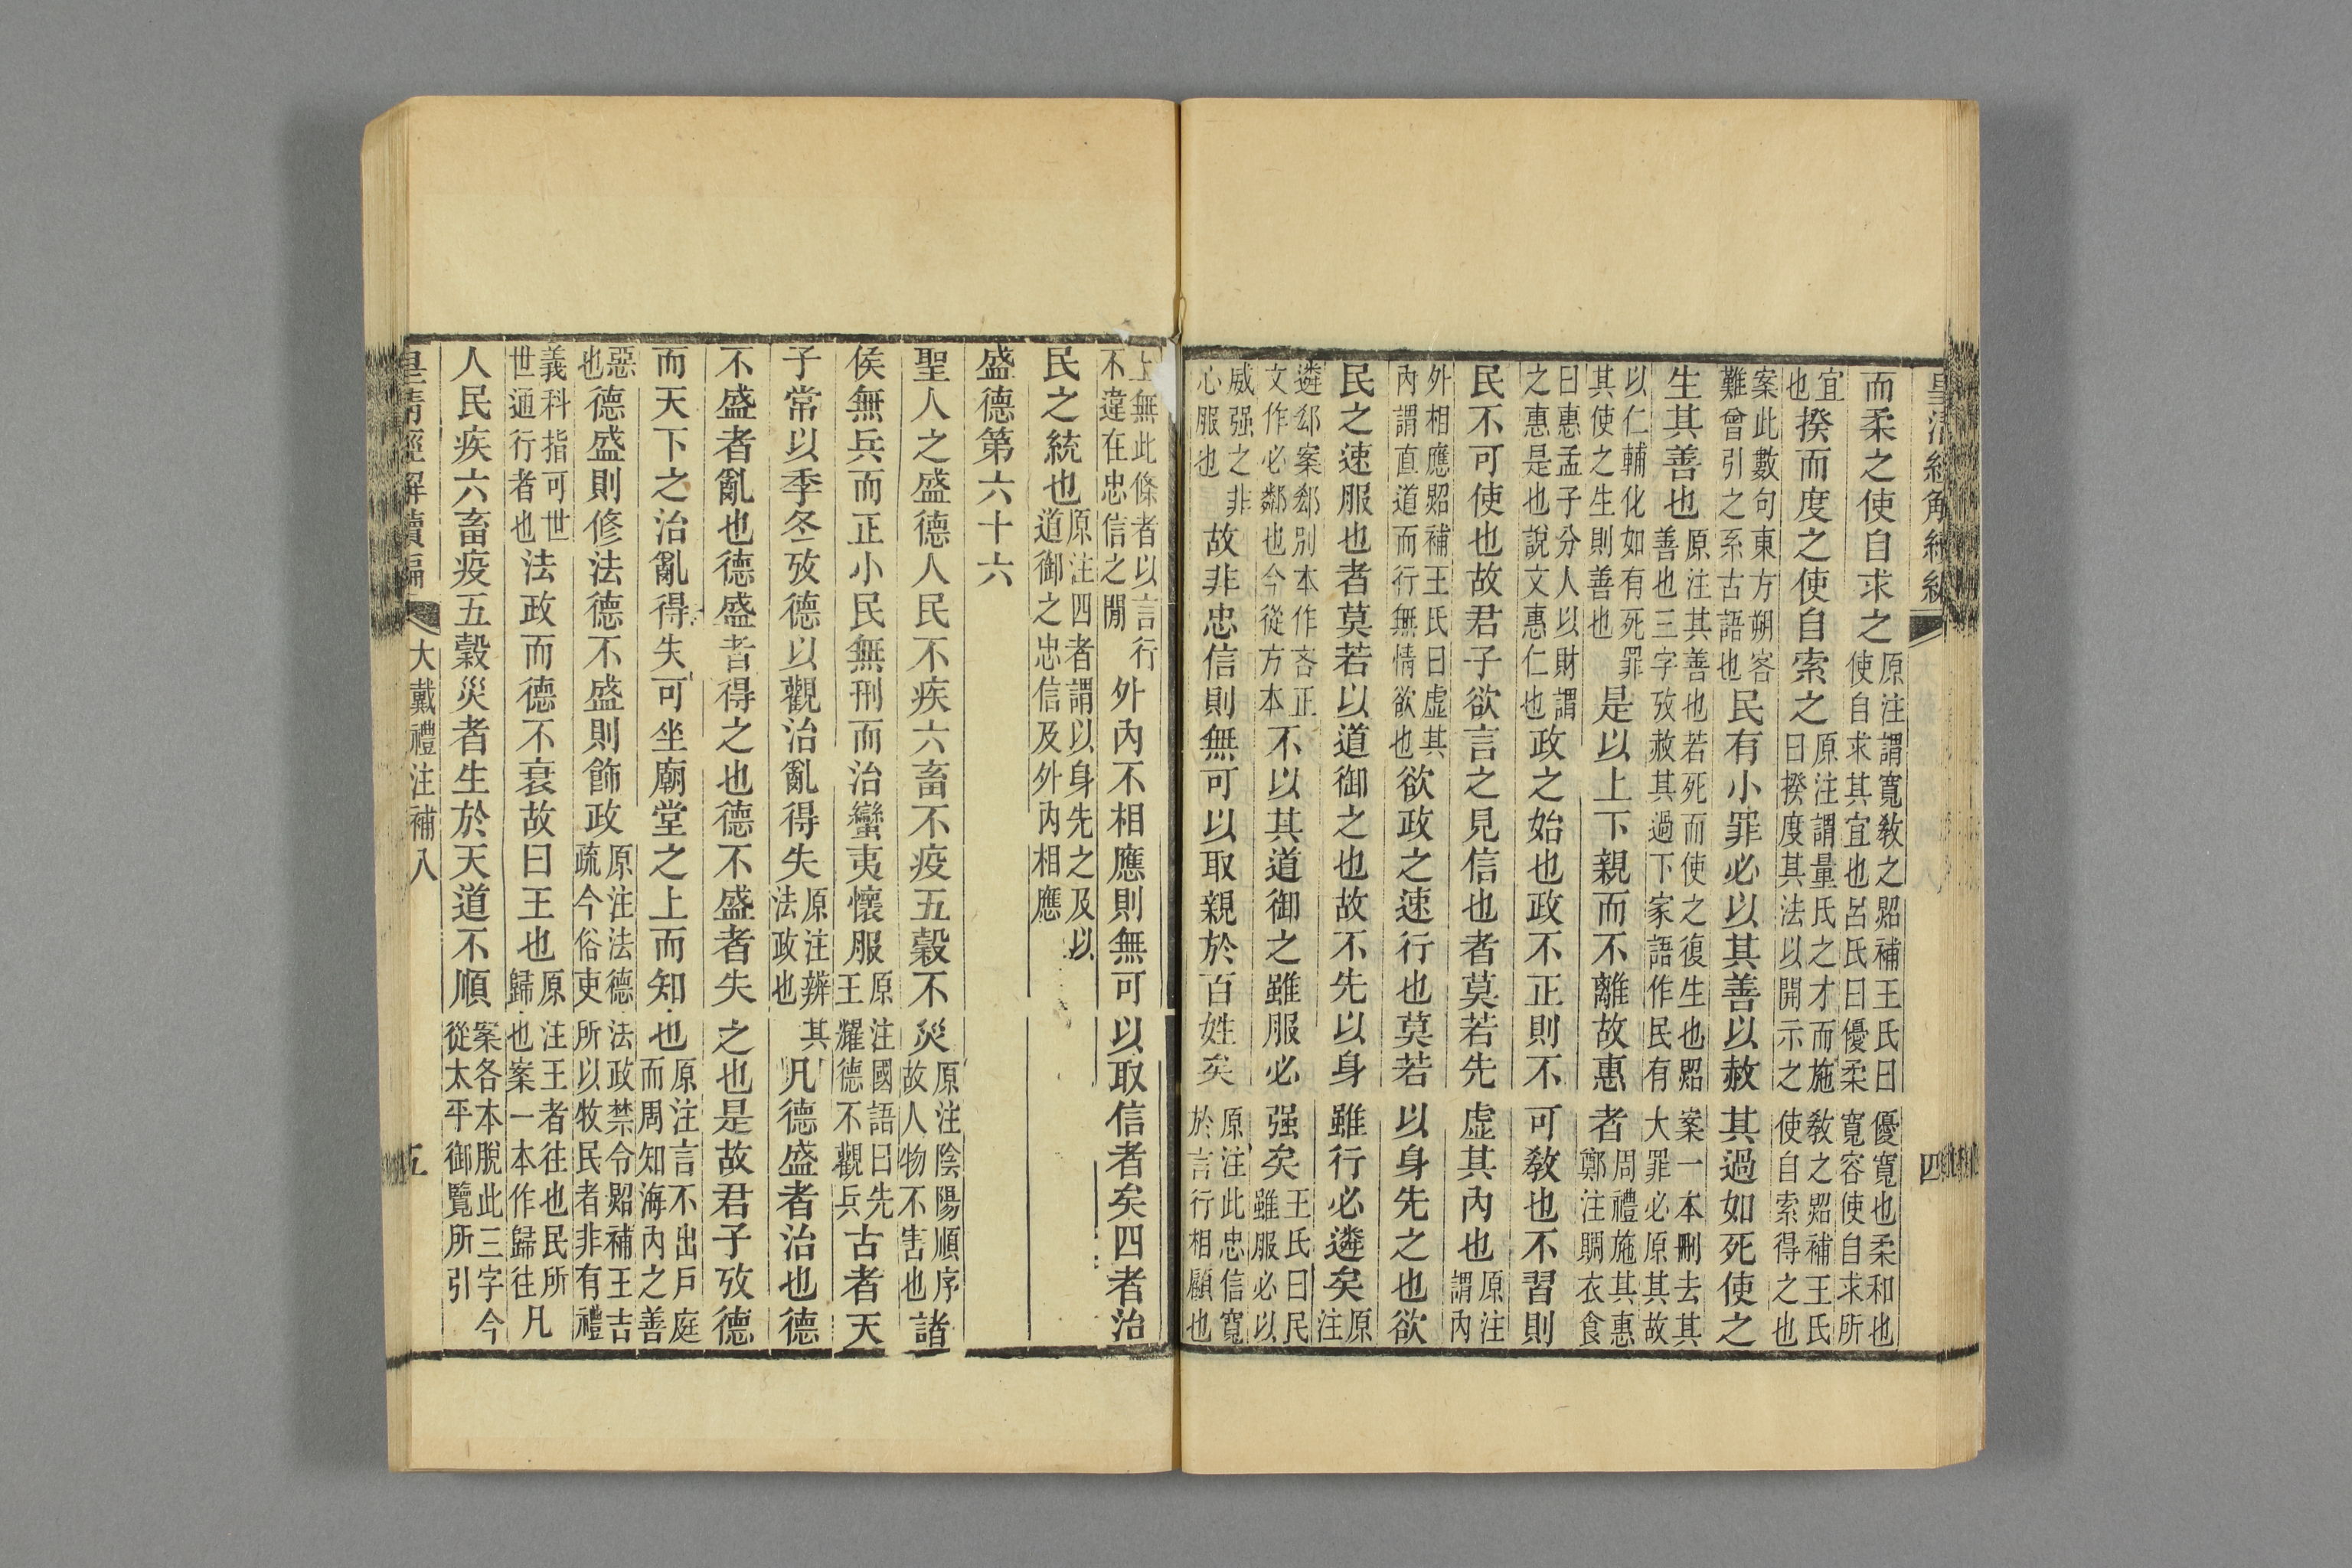 皇清經解續編　四
而柔之使自求之原注謂寬敎之貺補王氏曰優寬也柔和也使自求其宜也呂氏曰優柔寬容使自求所
宜也揆而度之使自索之原注謂量民之才而施敎之貺補王氏曰揆度其法以開示之使自索得之也
案此數句東方朔客難曾引之系古語也民有小罪必以其善以赦其過如死使之
生其善也原注其善也若死而使之復生也貺案一本刪去其善也三字攷赦其過下家語作民有大罪必原其故
以仁輔化如有死罪其使之生則善也是以上下親而不離故惠者周禮施其惠鄭注賙衣食
曰惠孟子分人以財謂之惠是也說文惠仁也政之始也政不正則不可敎也不習則
民不可使也故君子欲言之見信也者莫若先虛其內也原注謂內
外相應貺補王氏曰虛其內謂直道而行無情欲也欲政之速行也莫若以身先之也欲
民之速服也者莫若以道御之也故不先以身雖行必遴矣原注
遴郄案郄別本作吝正文作必鄰也今從方本不以其道御之雖服必强矣王氏曰民雖服必以
威强之非心服也故非忠信則無可以取親於百姓矣原注此忠信寬於言行相顧也
上無此條者以言行不違在忠信之閒外內不相應則無可以取信者矣四者治
民之統也原注四者謂以身先之及以道御之忠信及外內相應
盛德第六十六
聖人之盛德人民不疾六畜不疫五穀不災原注陰陽順序故人物不害也諸
侯無兵而正小民無刑而治蠻夷懷服原注國語曰先王耀德不觀兵古者天
子常以季冬攷德以觀治亂得失原注辨法政也其凡德盛者治也德
不盛者亂也德盛者得之也德不盛者失之也是故君子攷德
而天下之治亂得失可坐廟堂之上而知也原注言不出戶庭而周知海內之善
惡也德盛則修法德不盛則飾政原注法德法政禁令貺補王吉疏今俗吏所以牧民者非有禮
義科指可世世通行者也法政而德不衰故曰王也原注王者往也民所歸也案一本作歸往凡
人民疾六畜疫五穀災者生於天道不順案各本脫此三字今從太平御覽所引
皇清經解續編　大戴禮注補八　五